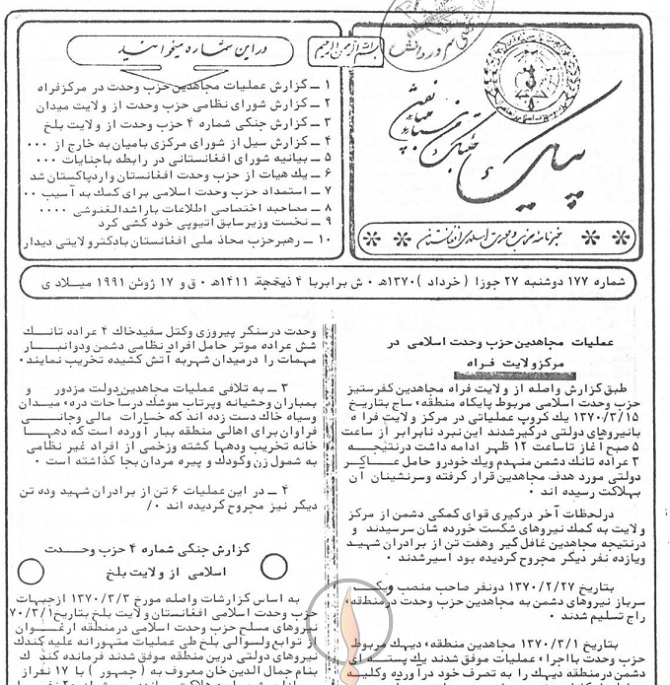 بسم الله الرحمن الرحیم
پیام
خبرنامه حزب وحدت اسلامی افغانستان
در این شماره میخوانید
۱ ــ گزارش عملیات مجاهدین حزب وحدت در مرکز فراه
۲ ــ گزارش شورای نظامی حزب وحدت از ولایت میدان
۳ ــ گزارش جنگی شماره ۴ حزب وحدت از ولایت بلخ
۴ ــ گزارش سیل از شورای مرکزی بامیان به خارج از ۰۰۰
۵ ــ بیانیه شورای افغانستانی در رابطه با جنایات ۰۰۰
۶ ــ یک هیات از حزب وحدت افغانستان وارد پاکستان شد
۷ ــ استمداد حزب وحدت اسلامی برای کمک به آسیب ۰۰
۸ ــ مصاحبه اختصاصی اطلاعات با راشد الغنوشی ۰۰۰۰
۹ ــ نخست وزیر سابق اتیوپی خود کشی کرد
۱۰ ــ رهبر حزب محاذ ملی افغانستان با دکتر ولایتی دیدار
شماره ۱۷۷ دوشنبه ۲۷ جوزا ( خرداد ) ۱۳۷۰ه ۰ ش برابر با ۴ ذیحجة ۱۴۱۱ه ۰ ق و ۱۷ ژوئن ۱۹۹۱ میلادی
عملیات مجاهدین حزب وحدت اسلامی در
مرکز ولایت فراه
طبق گزارش واصله از ولایت فراه مجاهدین کفرستیز
حزب وحدت اسلامی مربوط پایگاه منطقه ساج بتاریخ
۱۳۷۰/۳/۱۵ یک گروپ عملیاتی در مرکز ولایت فراه
با نیروهای دولتی درگیر شدند این نبرد نابرابر از ساعت
۵ صبح آغاز تا ساعت ۱۲ ظهر ادامه داشت در نتیجه
۳ عراده تانک دشمن منهدم ویک خودرو حامل عساکر
دولتی مورد هدف مجاهدین قرار گرفته وسرنشینان آن
بهلاکت رسیده اند ۰
در لحظات آخر درگیری قوای کمکی دشمن از مرکز
ولایت به کمک نیروهای شکست خورده شان سرسیدند و
در نتیجه مجاهدین غافل گیر وهفت تن از برادران شهید
ویازده نفر دیگر مجروح گردیده بود اسیر شدند ۰
بتاریخ ۱۳۷۰/۲/۲۷ دو نفر صاحب منصب ویک
سرباز نیروهای دشمن به مجاهدین حزب وحدت در منطقه
راج تسلیم شدند ۰
بتاریخ ۱۳۷۰/۳/۱ مجاهدین منطقه دیهک مربوط
حزب وحدت با اجراء عملیات موفق شدند یک پسته ای
دشمن در منطقه دیهک را به تصرف خود در آورده وکلیه
وحدت در سنگر پیروزی وکتل سفید خاک ۴ عراده تانک
شش عراده موتر حامل افراد نظامی دشمن ودو انبار
مهمات را در میدان شهر به آتش کشیده تخریب نمایند ۰
۳ ــ به تلافی عملیات مجاهدین دولت مزدور و
بمباران وحشیانه وپرتاب موشک در ساحات دره میدان
وسیاه خاک دست زده اند که خسارات مالی وجانی
فراوان برای اهالی منطقه ببار آورده است که دهها
خانه تخریب ودهها کشته وزخمی از افراد غیر نظامی
به شمول زن وکودک و پیره مردان بجا گذاشته است ۰
۴ ــ در این عملیات ۶ تن از برادران شهید وده تن
دیگر نیز مجروح گردیده اند ۰/
گزارش جنگی شماره ۴ حزب وحدت
اسلامی از ولایت بلخ
به اساس گزارشات واصله مورخ ۱۳۷۰/۳/۳ از جبهات
حزب وحدت اسلامی افغانستان ولایت بلخ بتاریخ ۷۰/۳/۱
نیروهای مسلح حزب وحدت اسلامی در منطقه ارغون
از توابع ولسوالی بلخ طی عملیات متهورانه علیه کندک
نیروهای دولتی درین منطقه موفق شدند فرمانده کندک
بنام جمال الدین خان معروف به ( جمهور ) با ۱۷ نفر از